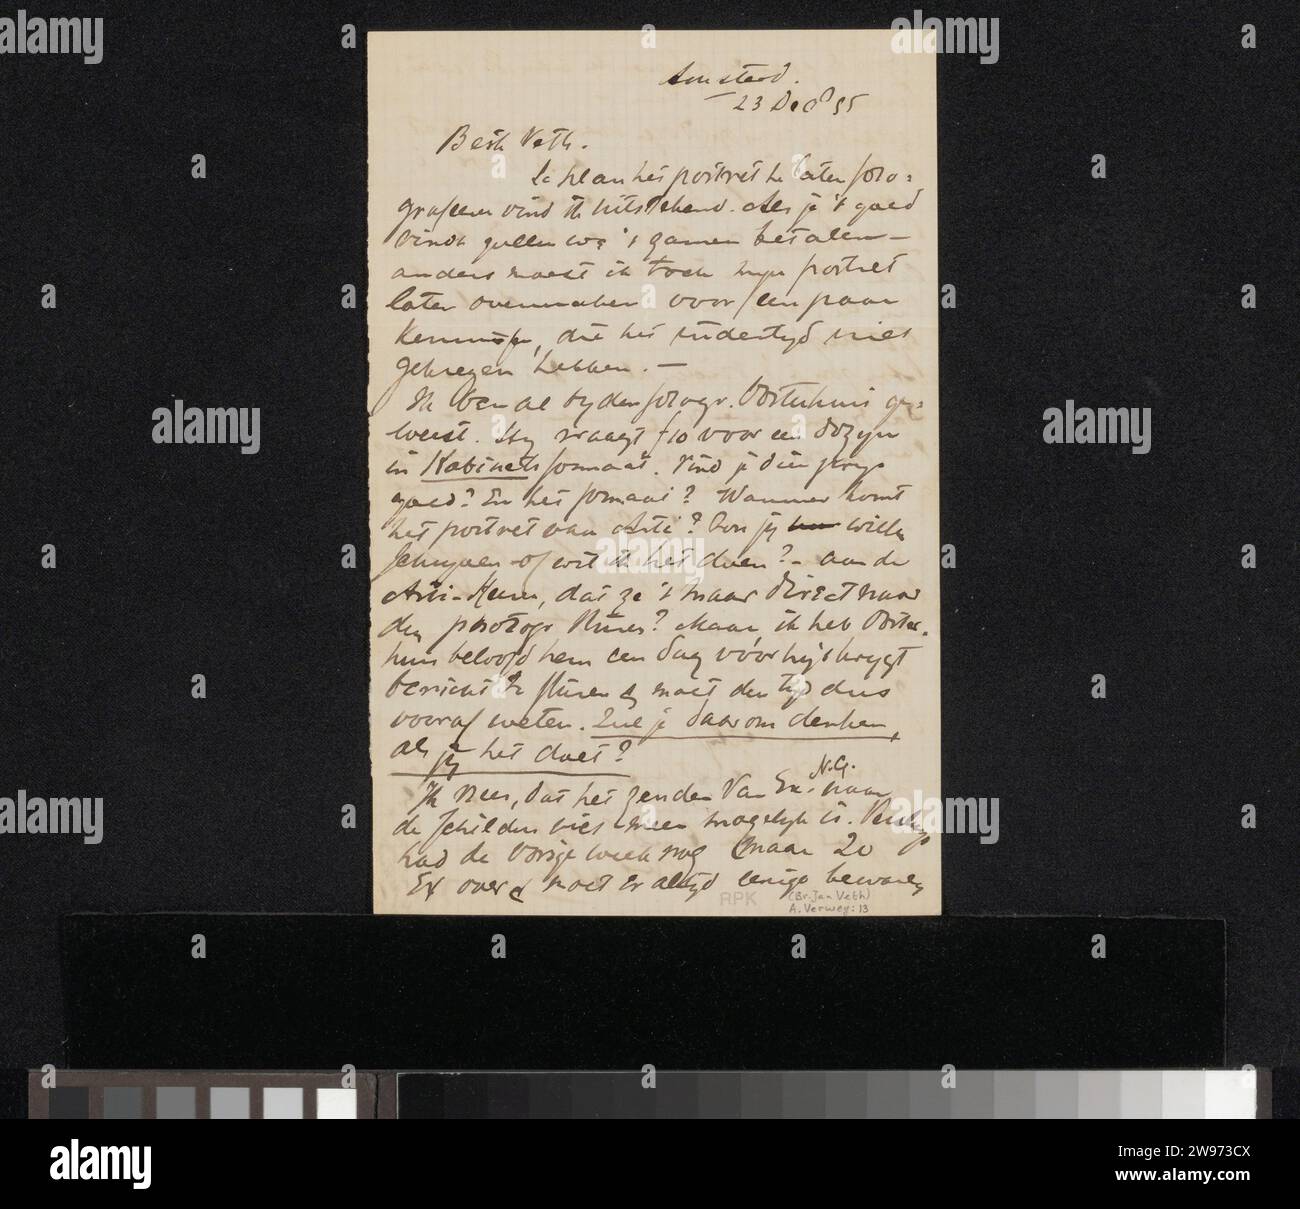 Amsterd.
23 Dec 95
Beste Veth.
Je plan het portret te laten foto=
grafeeren vind ik uitstekend. Als je 't goed
vindt zullen we 't zamen betalen –
anders moest ik toch mijn portret
laten overmaken voor een paar
kennisjes, die het indertijd niet
gekregen hebben. –
Ik ben al by den fotogr. Oosterhuis ge=
weest. Hij vraagt f 10 voor een dozijn
in Kabinets formaat. Vind je dien prijs
goed? En het formaat? Wanneer komt
het portret van Arti? Zou jij willen
schrijven of wil ik het doen? – aan de
Arti-Kum, dat ze 't maar direct naar
den photogr sturen? Maar, ik heb Ooster-
huis beloofd hem een dag vóór hij 't krijgt
bericht te sturen & moet den tijd dus
vooraf weten. Zul je daarom denken,
als jij het doet?
N.G.
Ik vrees, dat het zenden van Ex. naar
de schilders niet meer mogelijk is. Versluys
had de vorige week nog maar 20
Ex over & moet er altijd eenige bewaren
RPK
(Br. Jan Veth)
A. Verwey: 13
alamy
Image ID: 2W973CX
www.alamy.com